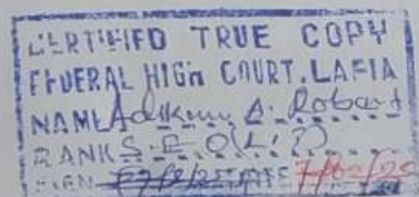 CERTIFIED TRUE COPY
FEDERAL HIGH COURT, LAFIA
NAME A. Robert
RANK S.E.O
SIGN DATE 7/02/25